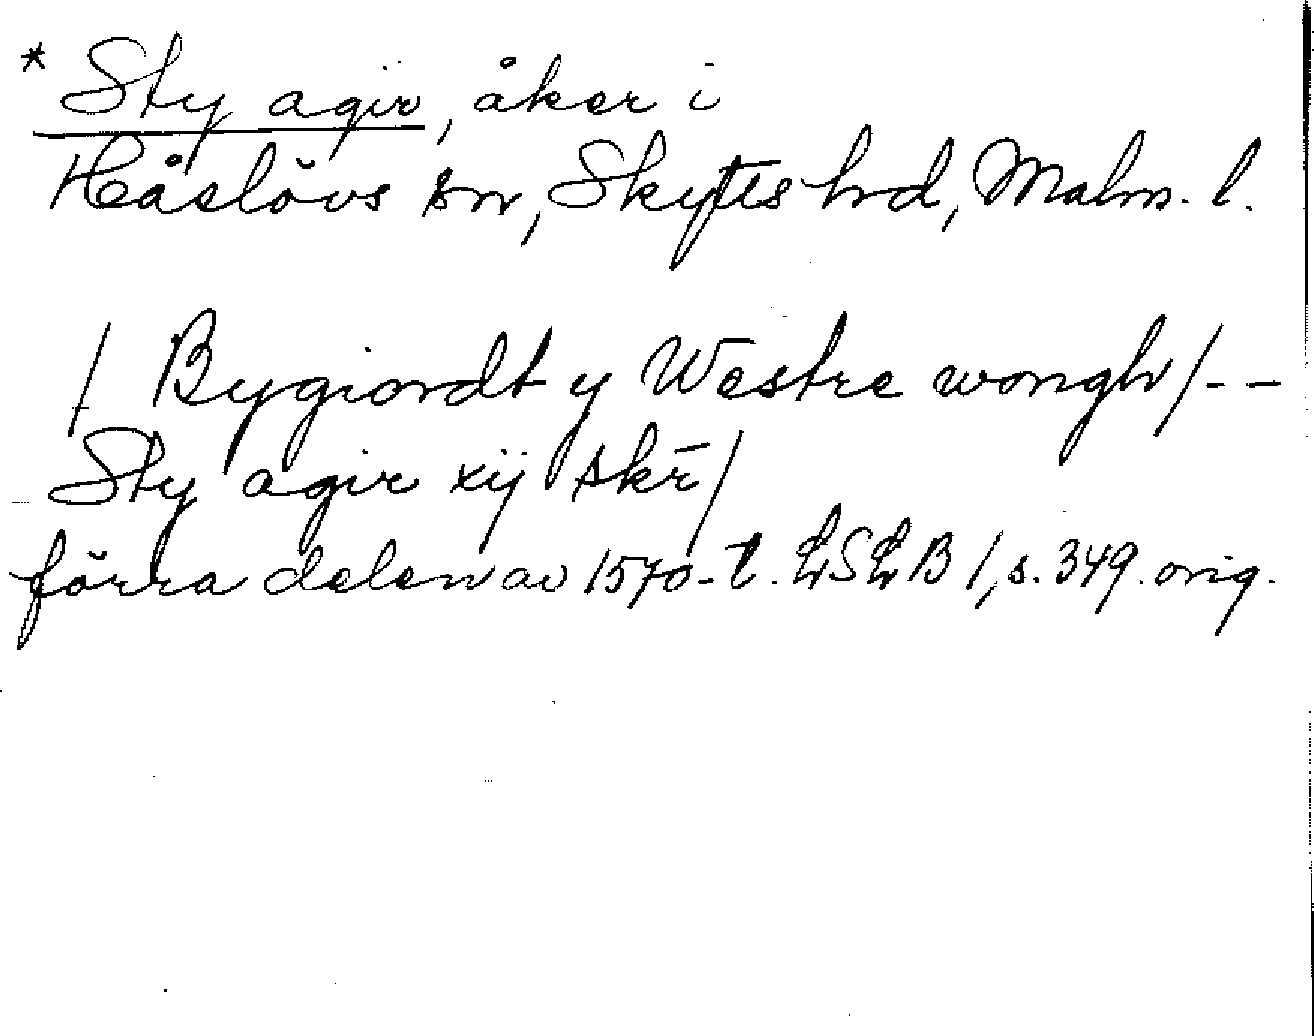 * Sty agir, åker i
Håslövs sn, Skytts hd, Malm. l.
/ Bygiordt y Westre wongh / - -
Sty agir xij skr̄ /
förra delen av 1570-t. LSLB 1, s. 349. orig.